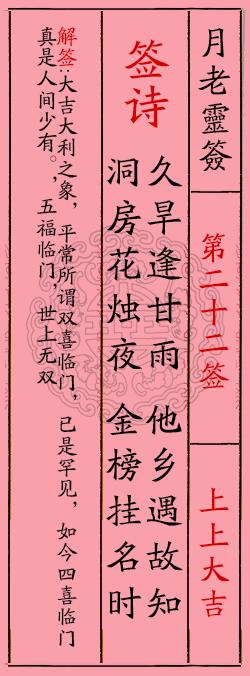 月老靈簽
第二十二签
上上大吉
签诗
久旱逢甘雨 他乡遇故知
洞房花烛夜 金榜挂名时
解签:大吉大利之象,平常所谓双喜临门,已是罕见,如今四喜临门
真是人间少有。,五福临门,世上无双